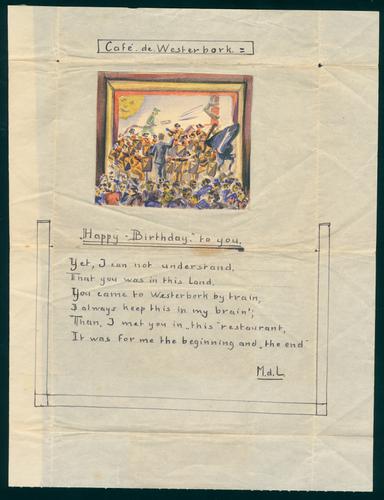 Café de Westerbork =
„Happy - Birthday." to you.
Yet, I can not understand.
That you was in this Land.
You came to Westerbork by train,
I always keep this in my brain';
Than, I met you in „this" restaurant,
It was for me the beginning and „the end"
M.d.L